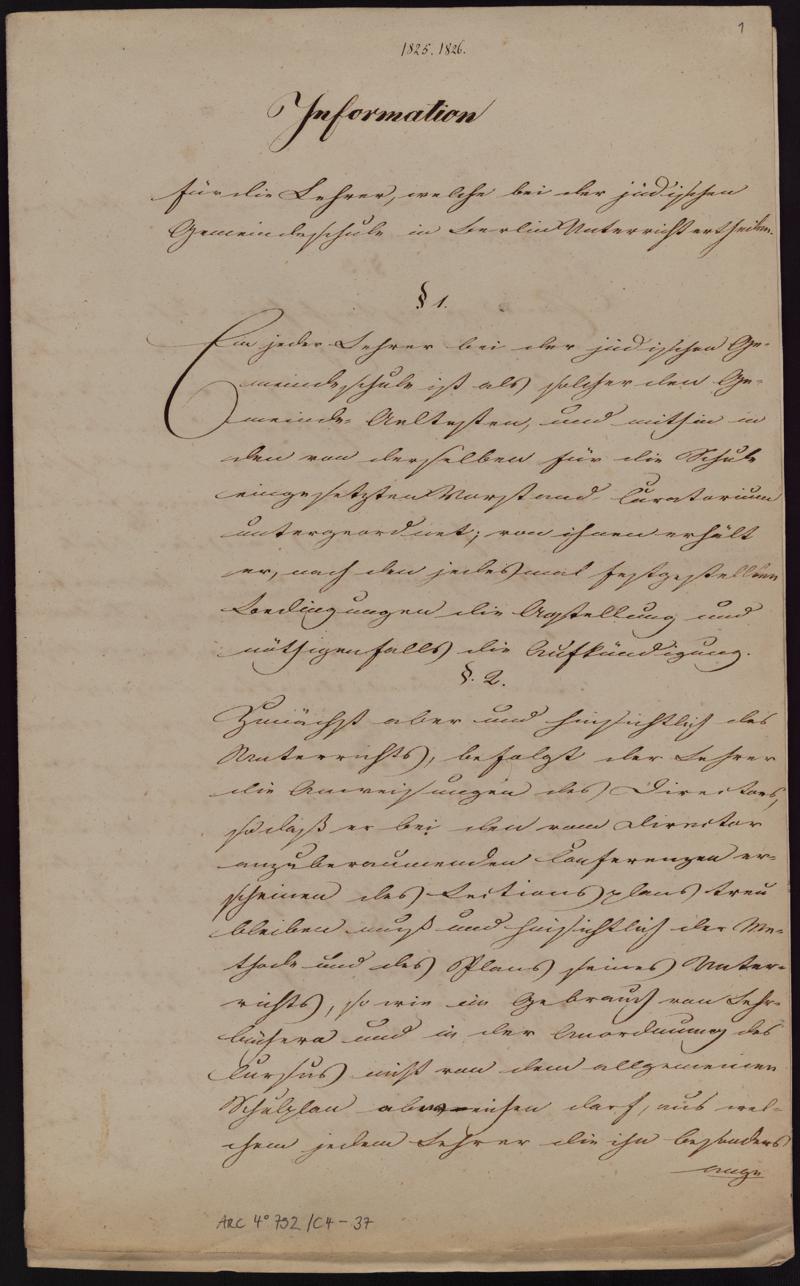 1
1825. 1826.
Information
für die Lehrer, welche bei der jüdischen
Gemeindeschule in Berlin Unterricht ertheilen.
§ 1.
Ein jeder Lehrer bei der jüdischen Ge-
meindeschule ist als solcher den Ge-
meinde-Aeltesten, und mithin in
den von derselben für die Schule
eingesetzten Vorstand Curatorium
untergeordnet; von ihnen erhält
er, nach den jedesmal festgestellten
Bedingungen die Anstellung und
nöthigenfalls die Aufkündigung.
§. 2.
Zunächst aber und hinsichtlich des
Unterrichts, befolgt der Lehrer
die Anweisungen des Directors,
so daß er bei den vom Director
anzuberaumenden Conferenzen er-
scheinen des Lectionsplans treu
bleiben muß und hinsichtlich der Me-
thode und des Plans seines Unter-
richts, so wie im Gebrauch von Lehr-
büchern und in der Anordnung des
Cursus nicht von dem allgemeinen
Schulplan abweichen darf, aus wel-
chem jedem Lehrer die ihn besonders
ange
ARC 4° 792 /C4-37